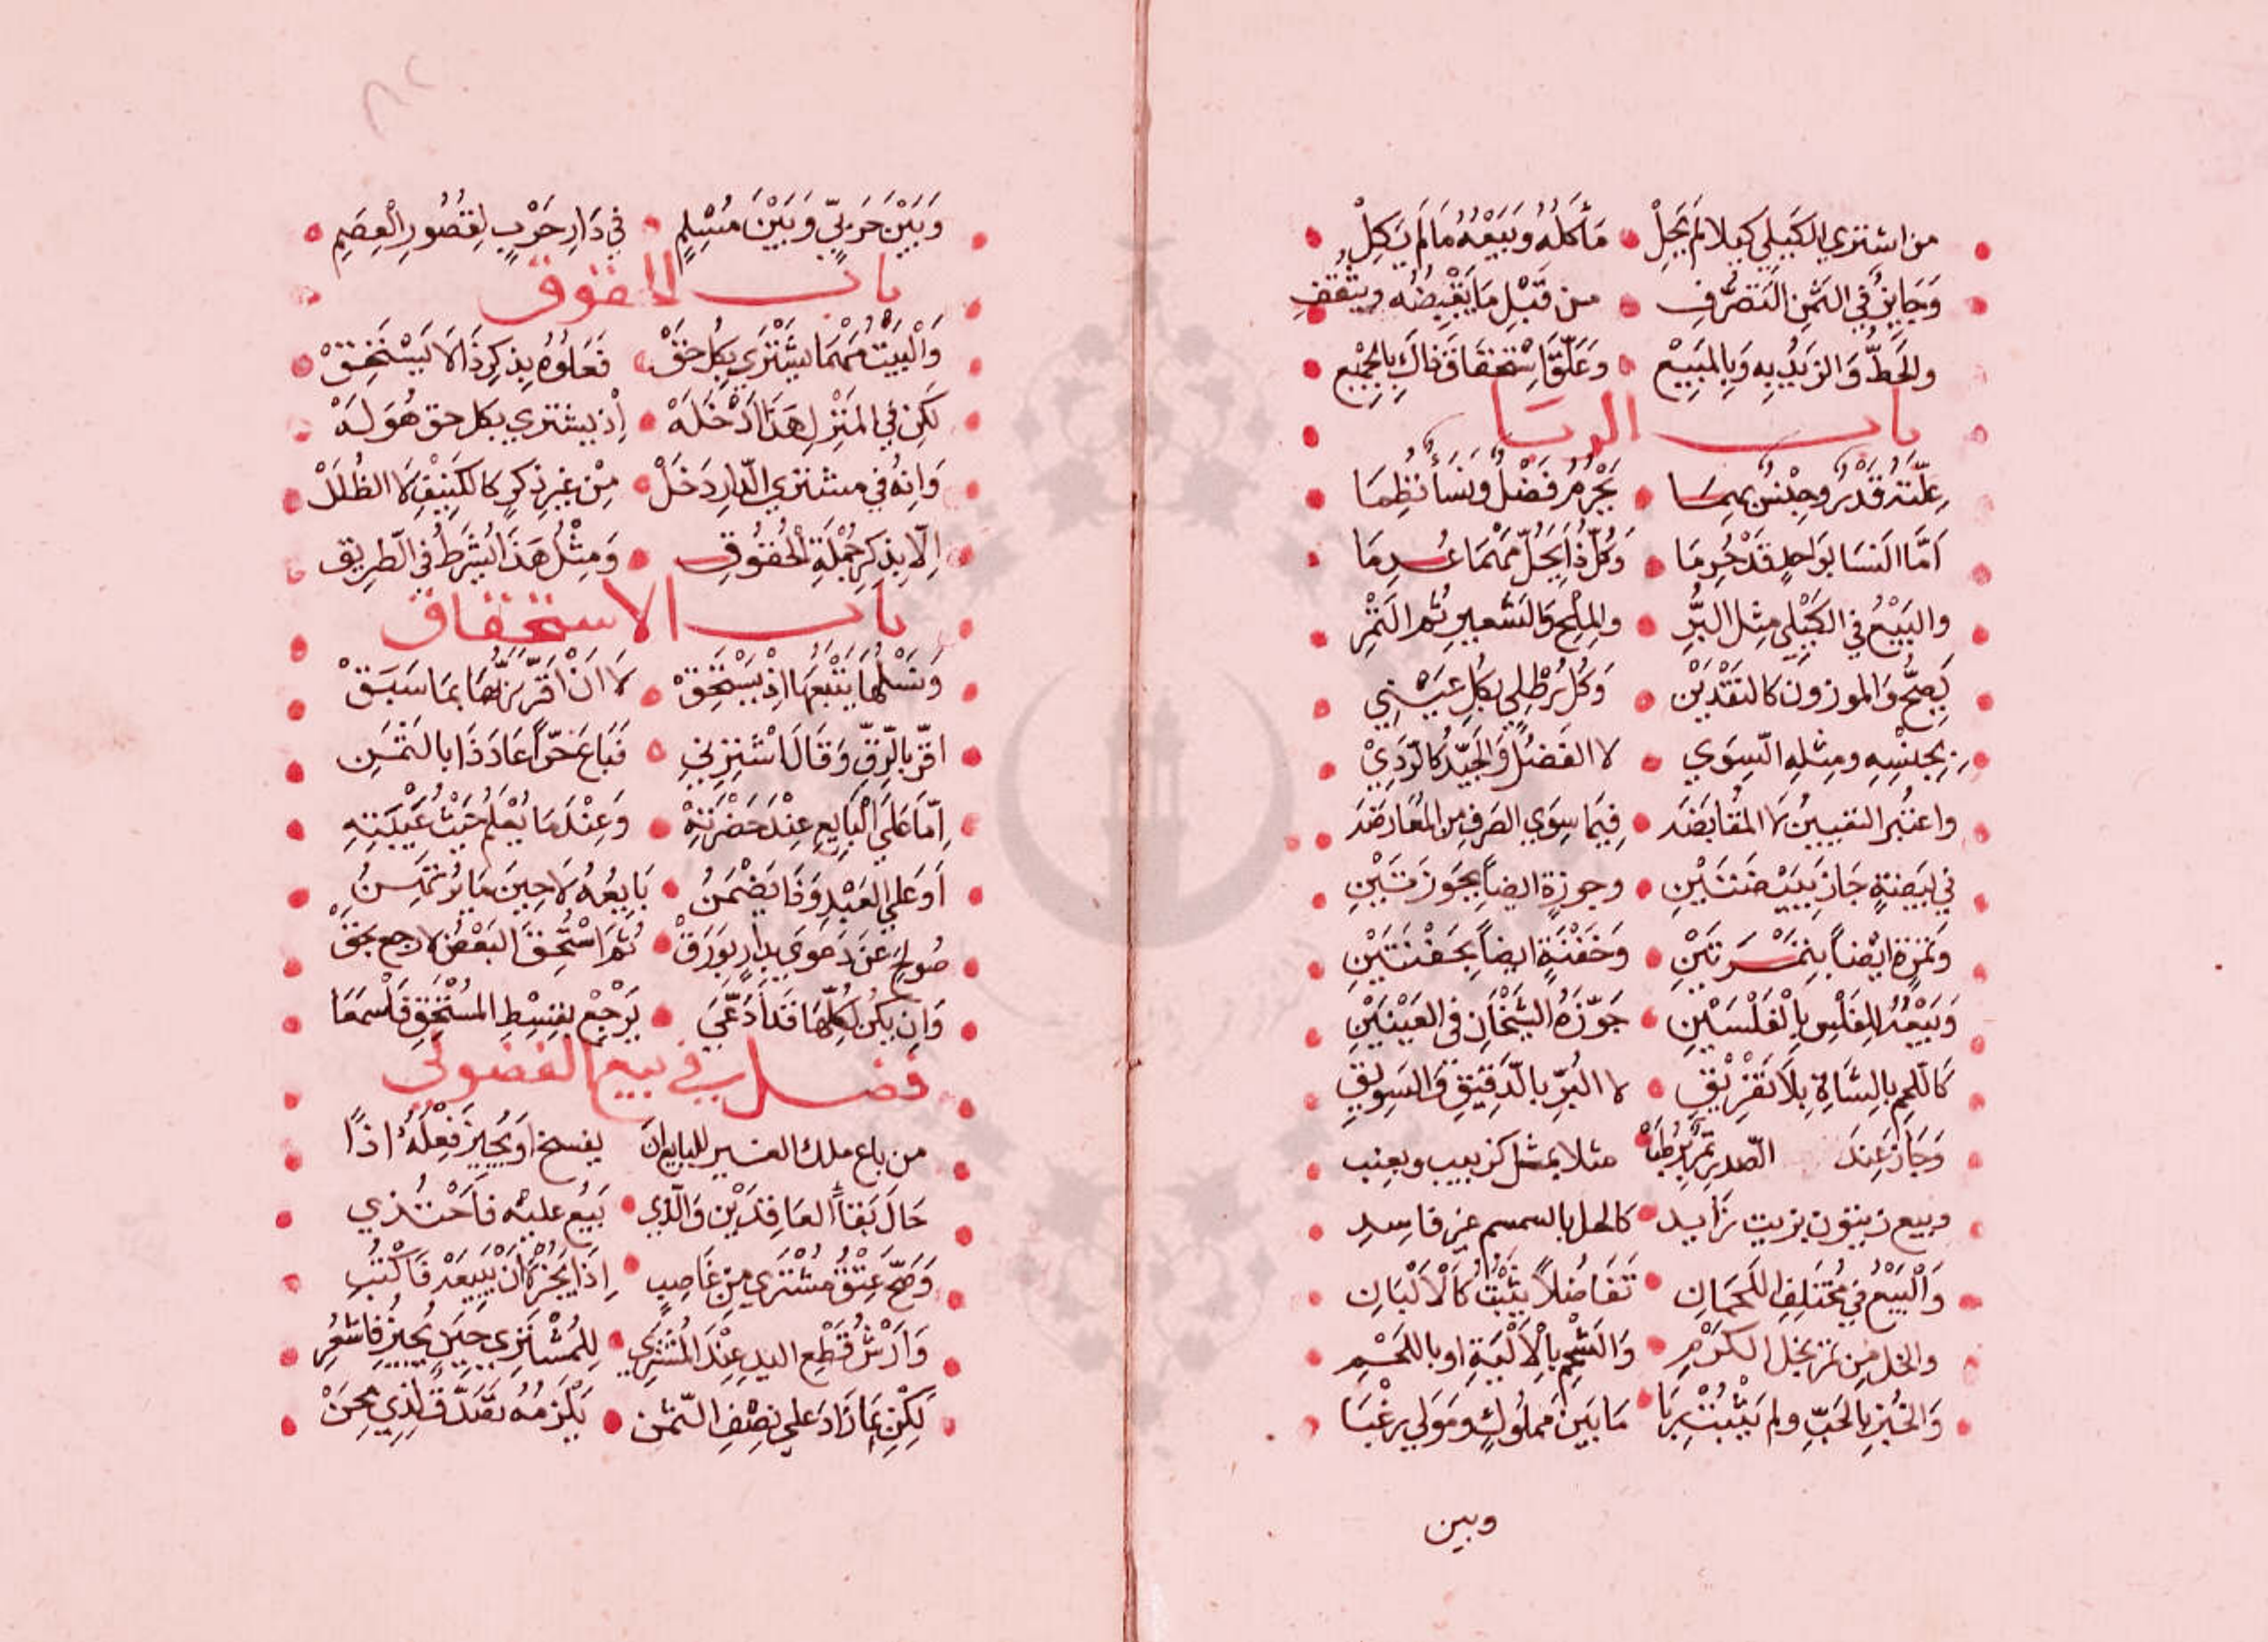 من اشتري الكيلي كيلا لم يحل مأكله وبيعه ما لم يكل
وجايز في الثمن التصرف من قبل ما يقبضه ويثقف
والحط والزيد به وبالمبيع وعلق استحقاق ذاك بالجميع
باب الربا
علته قدر وجنس بهما يحرم فضل ونسأ نظما
اما النسا بواحد قد حرما وكل ذا يحل مهما عدما
والبيع في الكيلي مثل البر والملح والشعير ثم التمر
يصح والموزون كالنقدين وكل رطلي بكل عين
بجنسه ومثله السوي لا الفضل والجيد كالردي
واعتبر التعيين لا المقابضه فيما سوي الصرف من المعارضه
في بيضة جاز ببيضتين وجوزة ايضاً بجوزتين
وتمرة ايضاً بتمرتين وحفنة ايضاً بحفنتين
وبيعه للفلس بالفلسين جوزه الشيخان في العينين
كاللحم بالشاة بلا تفريق لا البر بالدقيق والسويق
وجاز عند الصدر تمر برطب مثلا بمثل كزبيب وبعنب
وبيع زيتون بزيت زايد كالحل بالسمسم غير فاسد
والبيع في مختلف اللحمان تفاضلاً يثبت كالالبان
والخل من تمر بخل الكرم والشحم بالألية او باللحم
والخبز بالحب ولم يثبت ربا ما بين مملوك ومولي رغبا
وبين
وبين حربي وبين مسلم في دار حرب لقصور العصم
باب الحقوق
والبيت مهما يشتري بكل حق فعلوه بذكر ذا لا يستحق
لكن في المنزل هذا ادخله إذ يشتري بكل حق هو له
وانه في مشتري الدار دخل من غير ذكر كالكنيف لا الظلل
الا بذكر جملة الحقوق ومثل هذا الشرط في الطريق
باب الاستحقاق
ونسلها يتبعها اذ يستحق لا ان اقر ربها بما سبق
اقر بالرق وقال اشترني فباع حراً عاد ذا بالثمن
اما علي البايع عند حضرته وعند ما يعلم حيث غيبته
او علي العبد وفا يضمن بايعه لا حين ما يرتهن
صولح عن دعوي بدار بورق ثم استحق البعض لا رجع بحق
وان يكن لكلها قد ادعي يرجع بقسط المستحق فاسمعا
فصل في بيع الفضولي
من باع ملك الغير للبايع ان يفسخ او يجيز فعله اذاً
حال بقاً العاقدين والذي بيع عليه فاحتذي
وصح عتق مشتري من غاصب اذا يجز لا ان يبيعه فاكتب
وارش قطع اليد عند المشتري للمشتري حين يجيز فاشعر
لكن بما زاد علي نصف الثمن يلزمه تصدق لذي محن